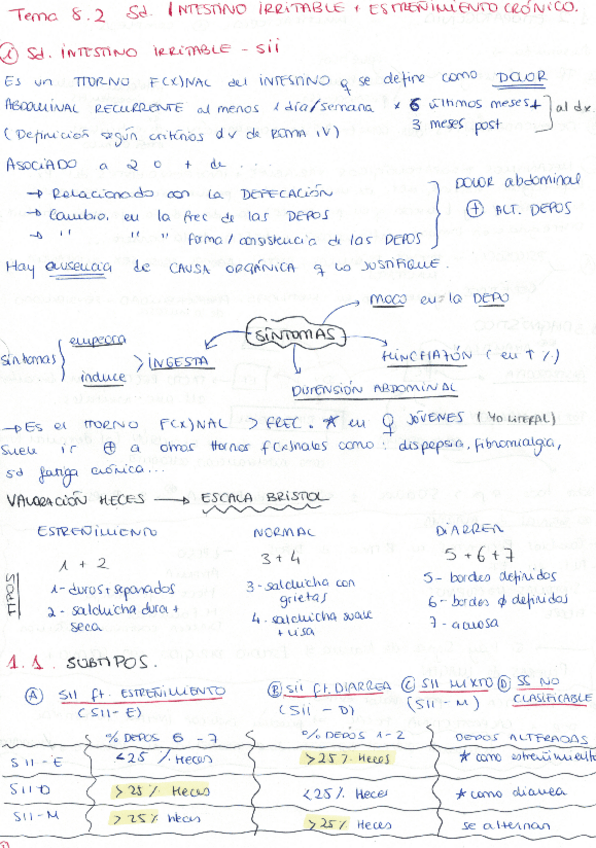 Tema 8.2 Sd. INTESTINO IRRITABLE + ESTREÑIMIENTO CRÓNICO.
① Sd. INTESTINO IRRITABLE - SII
ES UN TTORNO F(X)NAL del INTESTINO q se define como DOLOR
ABDOMINAL RECURRENTE al menos 1 día/semana x 6 últimos meses + ] al dx.
(Definición según criterios dx de ROMA IV) 3 meses post
ASOCIADO a 2 o + de....
→ Relacionado con la DEFECACIÓN
→ Cambio en la frec de las DEPOS
→ " " " forma/consistencia de las DEPOS
DOLOR abdominal
⊕ ALT. DEPOS
Hay ausencia de CAUSA ORGÁNICA q lo JUSTIFIQUE.
MOCO en la DEPO
SÍNTOMAS
síntomas { empeora
induce } > INGESTA
HINCHAZÓN (en ↑ %)
DISTENSIÓN ABDOMINAL
→ ES el TTORNO F(X)NAL > FREC. * en ♀ JÓVENES (yo literal)
Suele ir ⊕ a otros ttornos f(x)nales como: dispepsia, fibromialgia,
sd fatiga crónica...
VALORACIÓN HECES → ESCALA BRISTOL
ESTREÑIMIENTO NORMAL DIARREA
1 + 2 3 + 4 5 + 6 + 7
TIPOS
1- duros + separados
2- salchicha dura + seca
3- salchicha con grietas
4. salchicha suave + lisa
5- bordes definidos
6- bordes ∅ definidos
7- acuosa
1.1. SUBTIPOS.
Ⓐ SII ft. ESTREÑIMIENTO Ⓑ SII ft. DIARREA Ⓒ SII MIXTO Ⓓ SS NO
(SII-E) (SII-D) (SII-M) CLASIFICABLE
% DEPOS 6-7 % DEPOS 1-2 DEPOS ALTERADAS
SII-E <25% Heces >25% Heces * como estreñimiento
SII-D >25% Heces <25% Heces * como diarrea
SII-M >25% Heces >25% Heces se alternan